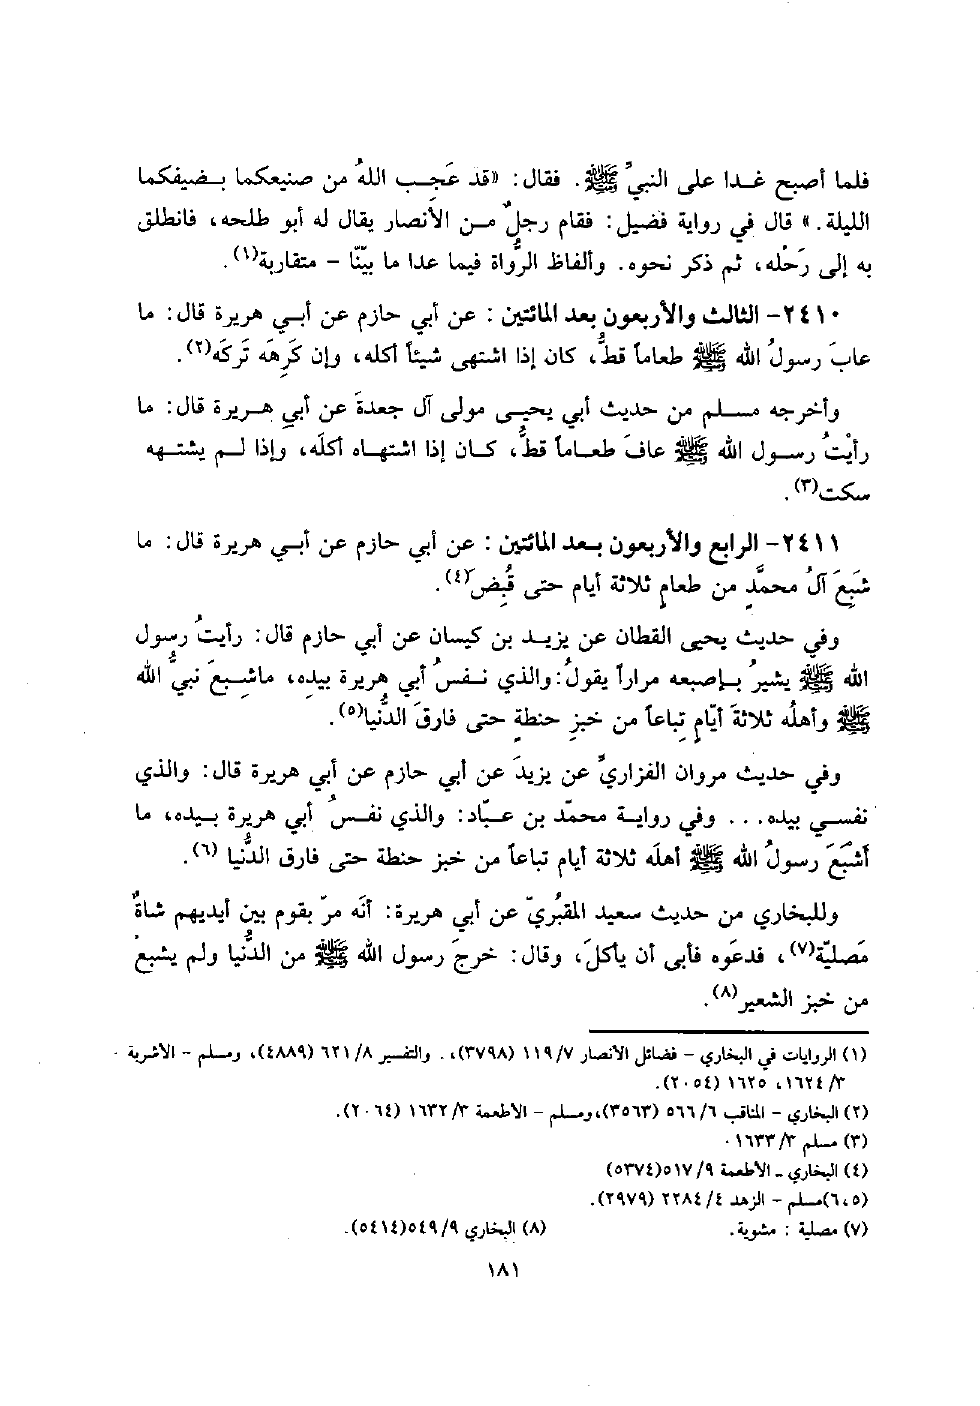 فلما أصبح غـدا على النبيِّ ﷺ. فقال: «قد عَجِـب اللهُ من صنيعكما بـضيفكما
الليلة.» قال في رواية فضيل: فقام رجلٌ مـن الأنصار يقال له أبو طلحه، فانطلق
به إلى رَحْله، ثم ذكر نحوه. وألفاظ الرُّواة فيما عدا ما بيّنّا - متقاربة(١).
٢٤١٠- الثالث والأربعون بعد المائتين : عن أبي حازم عن أبـي هريرة قال: ما
عابَ رسولُ الله ﷺ طعاماً قطُّ، كان إذا اشتهى شيئاً أكله، وإن كَرِهَه تَركَه(٢).
وأخرجه مسـلم من حديث أبي يحيـى مولى آل جعدةَ عن أبي هـريرة قال: ما
رأيْتُ رسـول الله ﷺ عافَ طعـاماً قطُّ، كـان إذا اشتهـاه أكلَه، وإذا لـم يشتهـه
سكت(٣).
٢٤١١- الرابع والأربعون بـعد المائتين : عن أبي حازم عن أبـي هريرة قال: ما
شَبِعَ آلُ محمدٍ من طعامٍ ثلاثة أيام حتى قُبِضَ(٤).
وفي حديث يحيى القطان عن يزيـد بن كيسان عن أبي حازم قال: رأيتُ رسول
الله ﷺ يشيرُ بـإصبعه مراراً يقولُ: والذي نـفسُ أبي هريرة بيدِه، ماشـبِعَ نبيُّ الله
ﷺ وأهلُه ثلاثةَ أيّامٍ تِباعاً من خبزِ حنطةٍ حتى فارقَ الدُّنيا(٥).
وفي حديث مروان الفزاريّ عن يزيدَ عن أبي حازم عن أبي هريرة قال: والذي
نفسـي بيده... وفي روايـة محمّد بن عـبّاد: والذي نفـسُ أبي هريرة بـيدِه، ما
أشْبَعَ رسولُ الله ﷺ أهلَه ثلاثة أيام تباعاً من خبز حنطة حتى فارق الدُّنيا (٦).
وللبخاري من حديث سعيد المقبُريّ عن أبي هريرة: أنّه مرّ بقوم بين أيديهم شاةٌ
مَصليّة(٧)، فدعَوه فأبى أن يأكلَ، وقال: خرجَ رسول الله ﷺ من الدُّنيا ولم يشبعْ
من خبز الشعير(٨).
(١) الروايات في البخاري - فضائل الأنصار ١١٩/٧ (٣٧٩٨)، . والتفسير ٦٣١/٨ (٤٨٨٩)، ومسلم - الأشربة
١٦٢٤/٣، ١٦٢٥ (٢٠٥٤).
(٢) البخاري - المناقب ٥٦٦/٦ (٣٥٦٣)، ومسلم - الأطعمة ١٦٣٢/٣ (٢٠٦٤).
(٣) مسلم ١٦٣٣/٣.
(٤) البخاري - الأطعمة ٥١٧/٩(٥٣٧٤)
(٥،٦)مسلم - الزهد ٢٢٨٤/٤ (٢٩٧٩).
(٧) مصلية : مشوية. (٨) البخاري ٥٤٩/٩(٥٤١٤).
١٨١